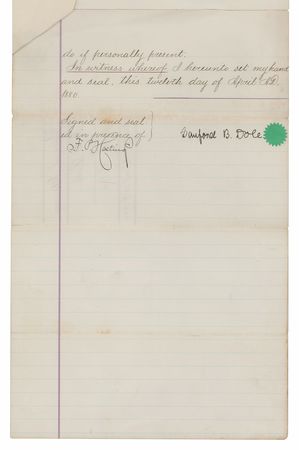 do if personally present.
In witness whereof I hereunto set my hand
and seal, this twelvth day of April A.D.
1880.
Signed and seal
ed in presence of
F. P. Hastings
Sanford B. Dole